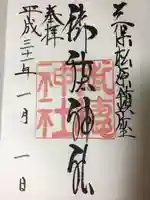 三保松原鎮座
御穂神社
奉拝
平成三十一年一月一日
神社